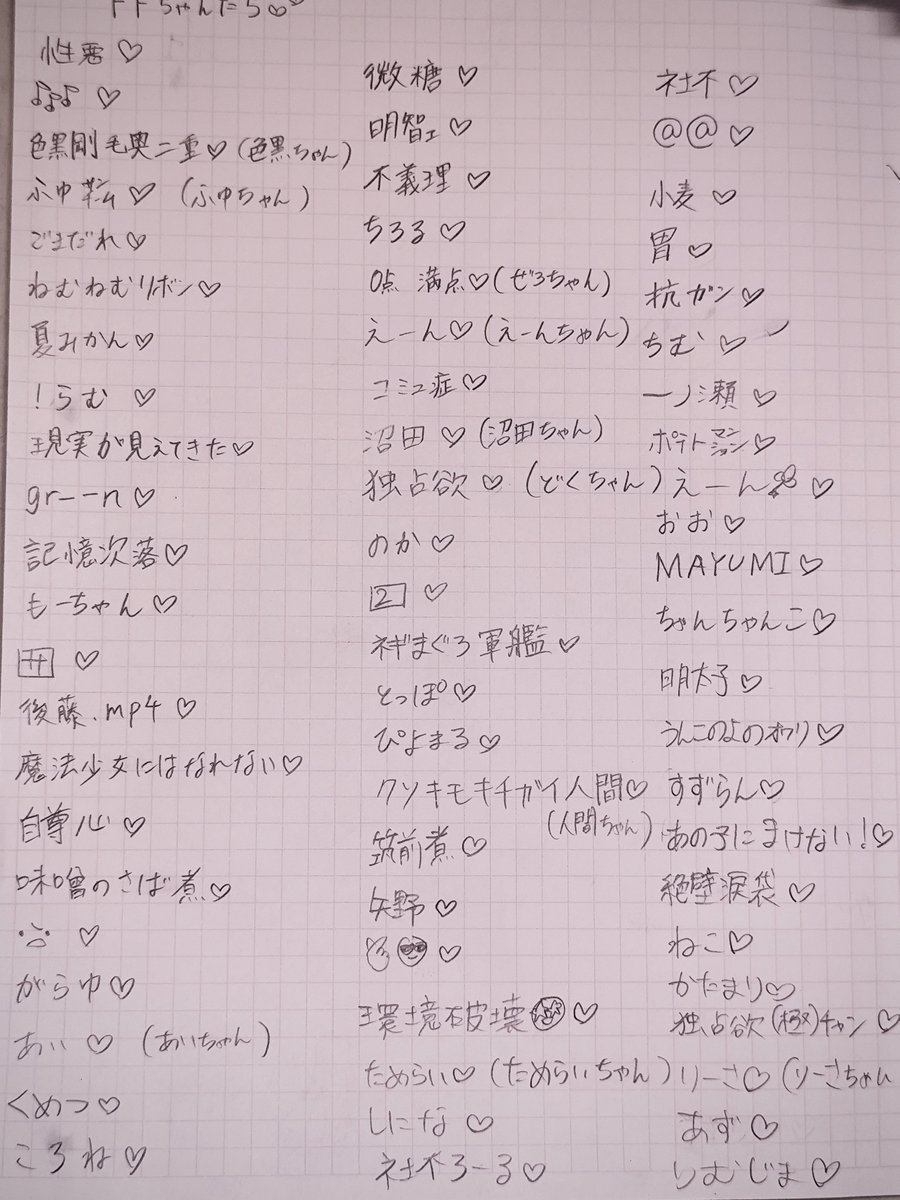 FFちゃんたち♡♡
性悪♡
♪♪♪♡
色黒剛毛奥二重♡(色黒ちゃん)
ふゆ♡(ふゆちゃん)
ごまだれ♡
ねむねむリボン♡
夏みかん♡
!らむ♡
現実が見えてきた♡
gr--n♡
記憶欠落♡
もーちゃん♡
♡
後藤.mp4♡
魔法少女にはなれない♡
自尊心♡
味噌のさば煮♡
♡
がらゆ♡
あい♡(あいちゃん)
くめつ♡
ころね♡
微糖♡
明智ェ♡
不義理♡
ちろる♡
0点 満点♡(ぜろちゃん)
えーん♡(えーんちゃん)
コミュ症♡
沼田♡(沼田ちゃん)
独占欲♡(どくちゃん)
のか♡
2♡
ネギまぐろ軍艦♡
とっぽ♡
ぴよまる♡
クソキモキチガイ人間♡
(人間ちゃん)
筑前煮♡
矢野♡
♡
環境破壊♡
ためらい♡(ためらいちゃん)
しにな♡
社不ろーる♡
社不♡
@@♡
小麦♡
胃♡
抗ガン♡
ちむ♡
一ノ瀬♡
ポテトマンション♡
えーん♡
おお♡
MAYUMI♡
ちゃんちゃんこ♡
明太子♡
うんこのよのオワリ♡
すずらん♡
あの子にまけない!♡
絶壁涙袋♡
ねこ♡
かたまり♡
独占欲(極)チャン♡
りーさ♡(りーさちゃん
あず♡
しむじま♡